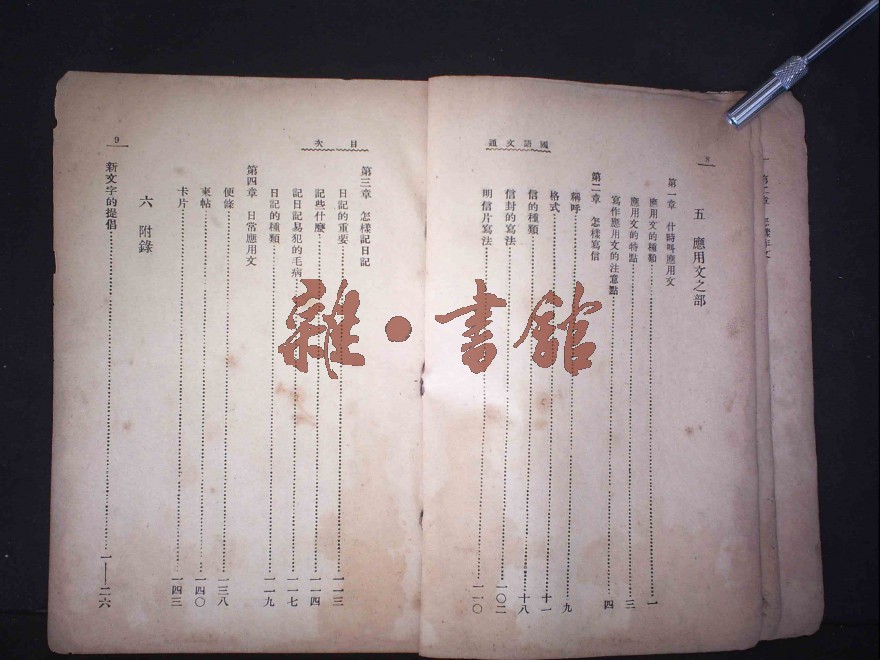 8
國語文通
五 應用文之部
第一章 什時叫應用文
應用文的種類……一
應用文的特點……三
寫作應用文的注意點……四
第二章 怎樣寫信
稱呼……九
格式……十一
信的種類……十八
信封的寫法……一〇二
明信片寫法……一一〇
目次
9
第三章 怎樣記日記
日記的重要……一一三
記些什麼……一一四
記日記易犯的毛病……一一七
日記的種類……一一九
第四章 日常應用文
便條……一三八
柬帖……一四〇
卡片……一四三
六 附錄
新文字的提倡……一——二六
雜·書館